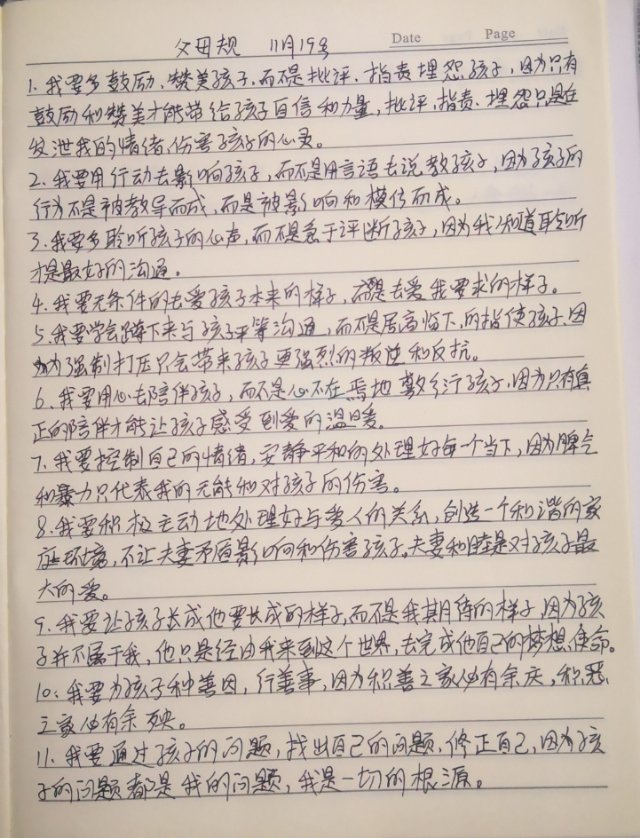 父母规 11月19号 Date Page
1. 我要多鼓励、赞美孩子,而不是批评、指责埋怨孩子,因为只有
鼓励和赞美才能带给孩子自信和力量,批评、指责、埋怨只是在
发泄我的情绪,伤害孩子的心灵。
2. 我要用行动去影响孩子,而不是用言语去说教孩子,因为孩子的
行为不是被教导而成,而是被影响和模仿而成。
3. 我要多聆听孩子的心声,而不是急于评断孩子,因为我知道聆听
才是最好的沟通。
4. 我要无条件的去爱孩子本来的样子,而不是去爱我要求的样子。
5. 我要学会蹲下来与孩子平等沟通,而不是居高临下的指使孩子,因
为强制打压只会带来孩子更强烈的叛逆和反抗。
6. 我要用心去陪伴孩子,而不是心不在焉地敷衍孩子,因为只有真
正的陪伴才能让孩子感受到爱的温暖。
7. 我要控制自己的情绪,安静平和的处理好每一个当下,因为脾气
和暴力只代表我的无能和对孩子的伤害。
8. 我要积极主动地处理好与爱人的关系,创造一个和谐的家
庭环境,不让夫妻矛盾影响和伤害孩子。夫妻和睦是对孩子最
大的爱。
9. 我要让孩子长成他要长成的样子,而不是我期待的样子,因为孩
子并不属于我,他只是经由我来到这个世界,去完成他自己的梦想、使命。
10. 我要为孩子种善因,行善事,因为积善之家必有余庆,积恶
之家必有余殃。
11. 我要通过孩子的问题,找出自己的问题,修正自己,因为孩
子的问题都是我的问题,我是一切的根源。